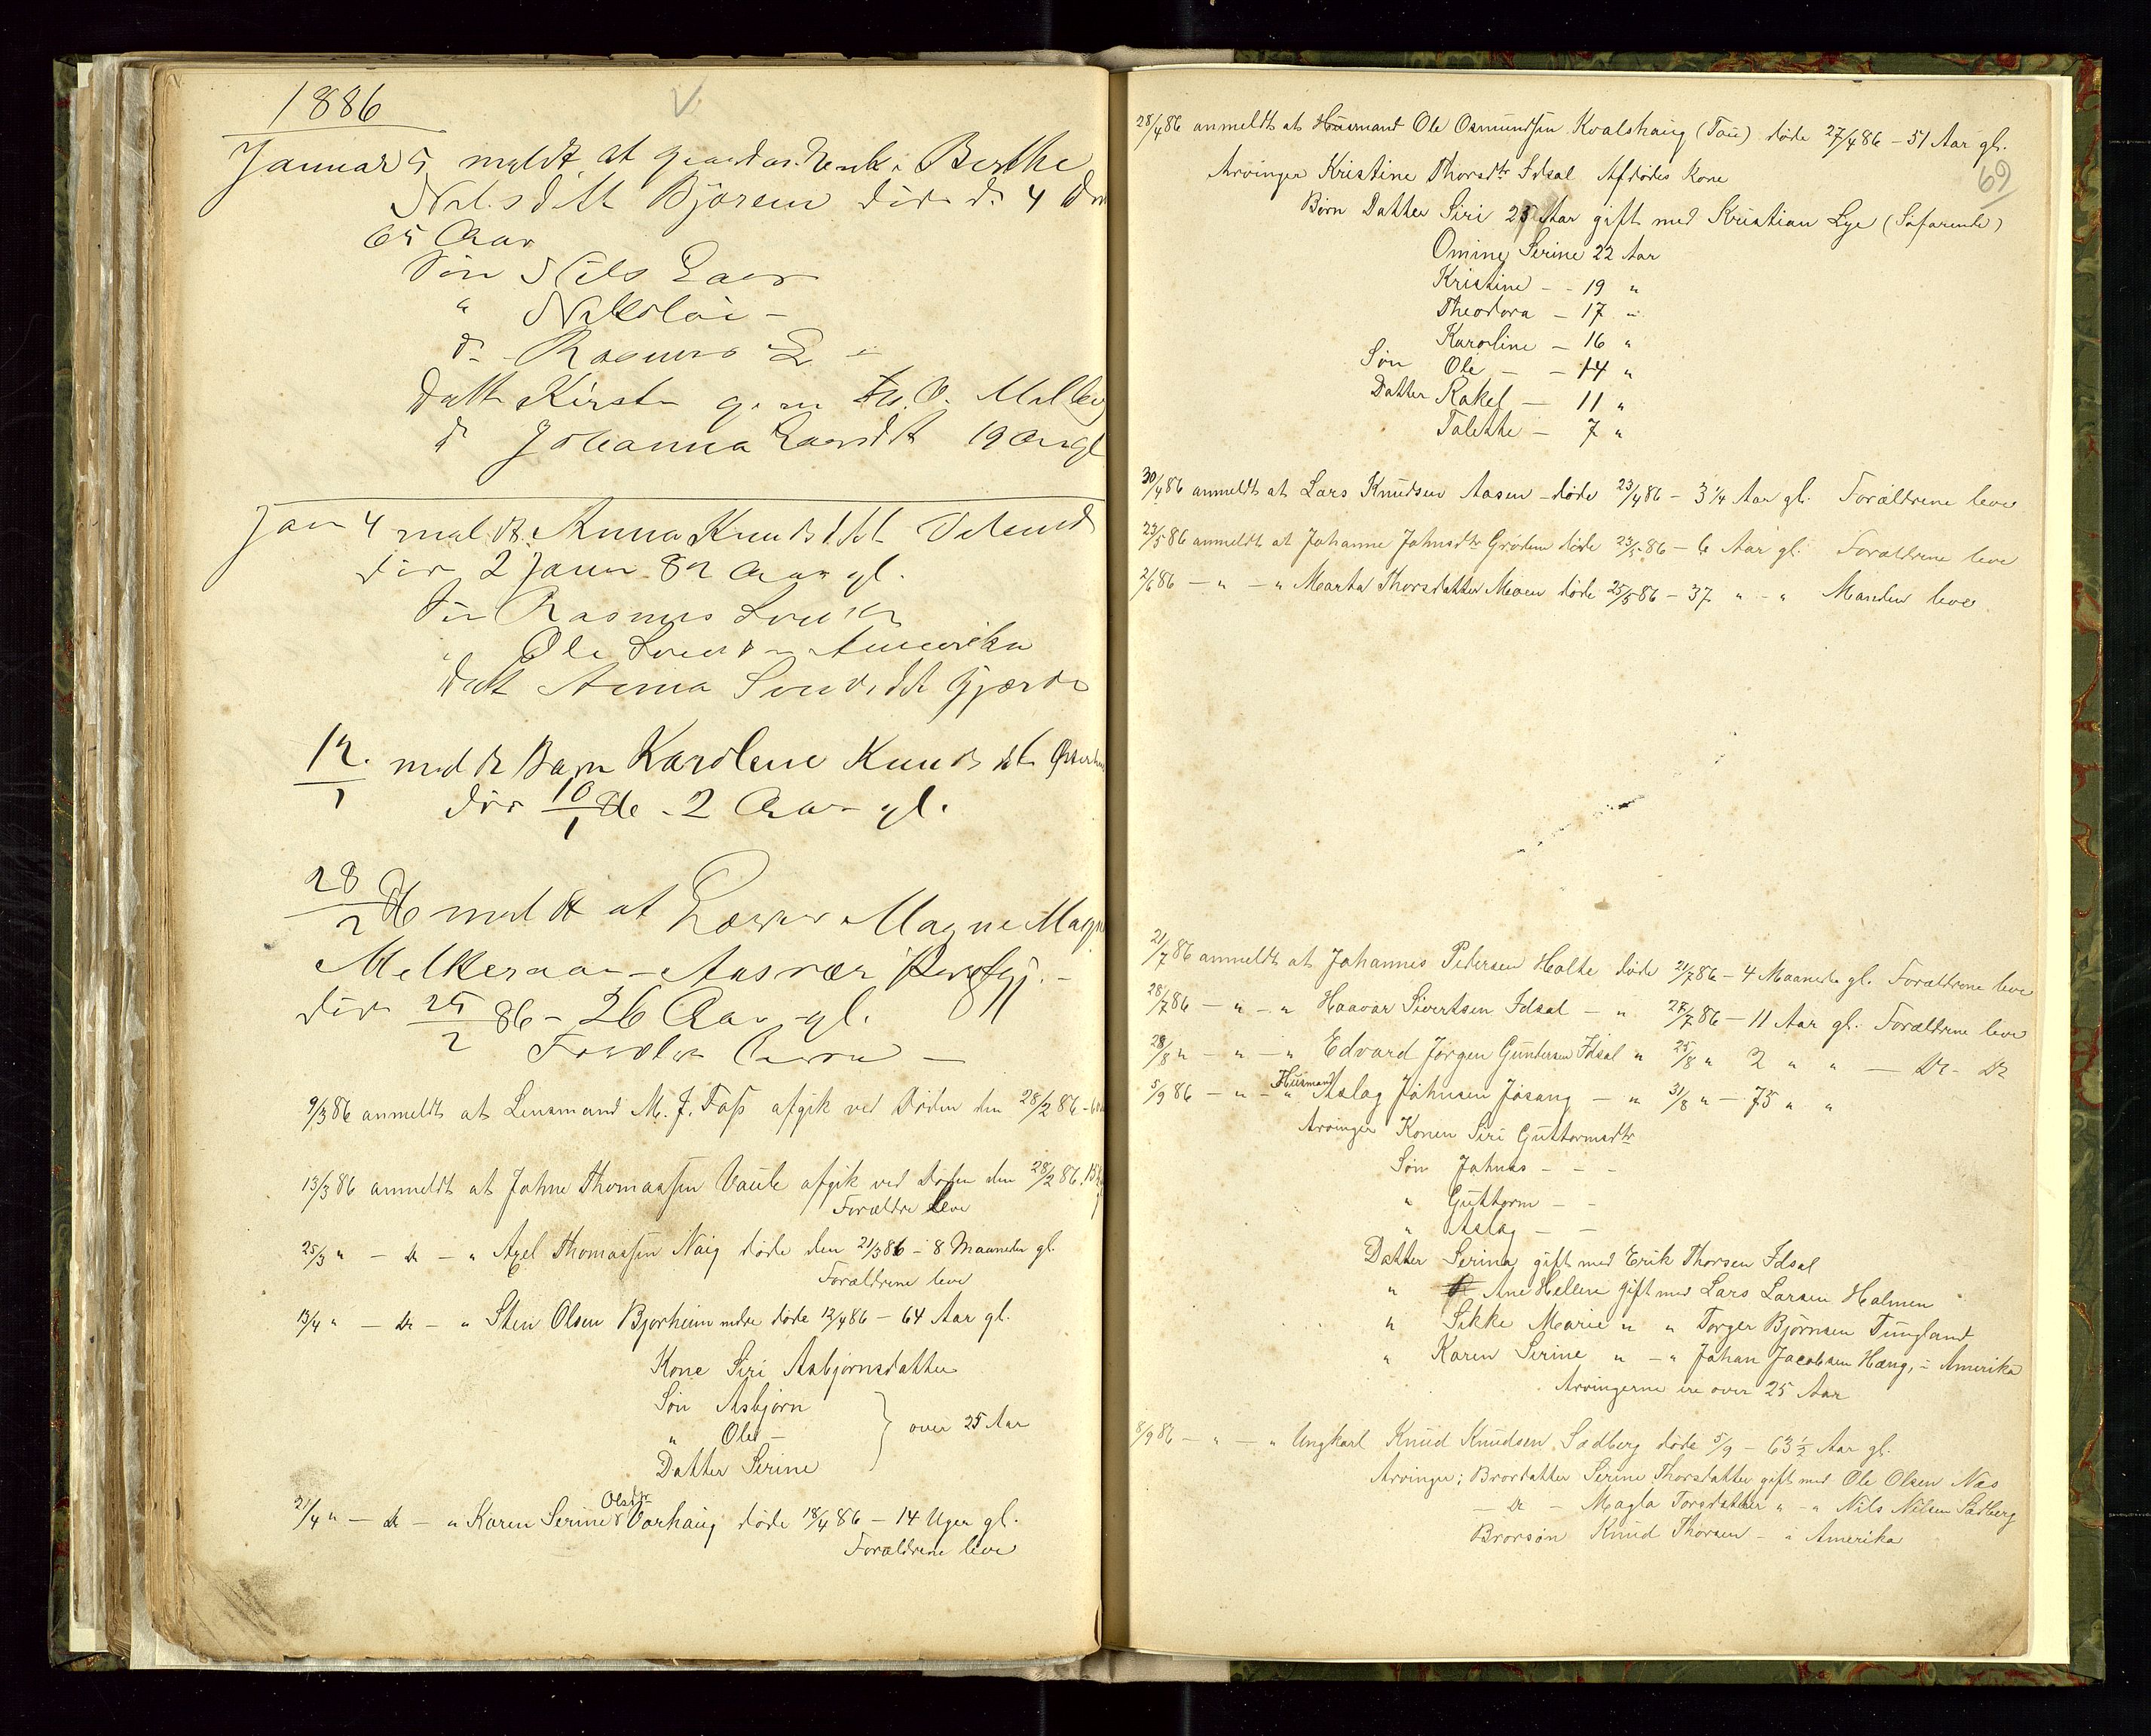 1886
Januar 5 meldt at Berthe
Nilsdatt Bjørem døde d. 4 dm
65 Aar
Søn Nils Lars
" Nikolai -
d. Rasmus L
Datt Kirst g. m
d Johanna Larsdt 19 Aar gl
Jan 4 meldt Anna Knudsdtt
døde 2 Janu 82 Aar gl.
Søn Rasmus
" Ole Amerika
datt Anna Gjerde
12/1 meldt Barn Karolene Knudsdt
døde 10/1 86 - 2 Aar gl.
28/2 86 meldt at Magne Magn
Melkeraaen - Aasvær
døde 25/2 86 - 26 Aar gl.
9/3 86 anmeldt at Lensmand M. J. Foss afgik ved Døden den 28/2 86 -
13/3 86 anmeldt at Johne Thomassen Vaule afgik ved Døden den 28/2 86.
Forældre leve
25/3 " - do - " Axel Thomassen Naig døde den 21/3 86 - 8 Maaneder gl.
Forældrene leve
13/4 " - do - " Sten Olsen Bjorheim nedre døde 12/4 86 - 64 Aar gl.
Kone Siri Asbjørnsdatter
Søn Asbjørn
" Ole - } over 25 Aar
Datter Serine
21/4 " - do - " Karen Serine Olsdtr Varhaug døde 18/4 86 - 14 Uger gl.
Forældrene leve
69
28/4 86 anmeldt at Husmand Ole Osmundsen Kvalshaug (Tau) døde 27/4 86 - 51 Aar gl.
Arvinger Kristine Thorsdtr Idsal Afdødes Kone
Børn Datter Siri 25 Aar gift med Kristian Lye (Søfarende)
Omine Serine 22 Aar
Kristine - - 19 "
Theodora - 17 "
Karoline - 16 "
Søn Ole - - 14 "
Datter Rakel - 11 "
Talette - 7 "
30/4 86 anmeldt at Lars Knudsen Aasen døde 23/4 86 - 3 1/4 Aar gl. Forældrene leve
23/5 86 anmeldt at Johanne Johnsdtr Grøden døde 23/5 86 - 6 Aar gl. Forældrene leve
2/6 86 - " - " Marta Thorsdatter Moen døde 25/5 86 - 37 " - " Manden leve
21/7 86 anmeldt at Johannes Pedersen Holte døde 21/7 86 - 4 Maaneder gl. Forældrene leve
28/7 86 - " - " Haavar Sivertsen Idsal - " 27/7 86 - 11 Aar gl. Forældrene leve
28/8 " - " - " Edvard Jørgen Guntersen Idsal " 25/8 " 2 " " - Do - Do
5/9 86 - " - " Husmand Aslag Johnsen Jøsang - " 31/8 " - 75 " "
Arvinger Konen Siri Guttormsdtr
Søn Johnas - - -
" Guttorm - -
" Aslag - -
Datter Serina gift med Erik Thorsen Idsal
" Ane Hellene gift med Lars Larsen Holmen
" Sikke Marie " " Torger Bjørnsen Tungland
" Karen Serine " - " Johan Jacobsen Haug, i Amerika
Arvingerne ere over 25 Aar
8/9 86 - " - " Ungkarl Knud Knudsen Sædberg døde 5/9 - 63 1/2 Aar gl.
Arvinger: Brordatter Serine Thorsdatter gift med Ole Olsen Næs
- do - Magla Torsdatter " - " Nils Nilsen Sædberg
Brorsøn Knud Thorsen - i Amerika